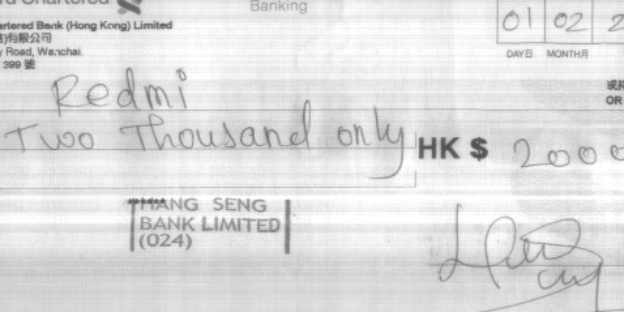 Banking
artered Bank (Hong Kong) Limited
)有限公司
Road, Wanchai.
399 號
01 02 2
DAY日 MONTH月
Redmi
OR
Two Thousand only
HK $ 2000
HANG SENG
BANK LIMITED
(024)